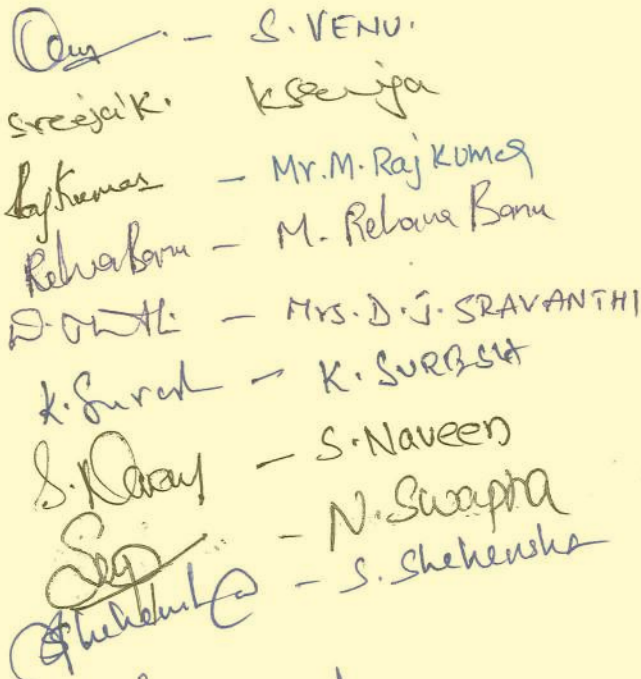 - S. VENU.
sreeja K.
Rajkumar - Mr. M. Raj Kumar
RehanaBanu - M. Rehana Banu
- Mrs. D. J. SRAVANTHI
K. Suresh - K. SURESH
S. Naveen - S. Naveen
- N. Swapna
Shehensha - S. Shehensha